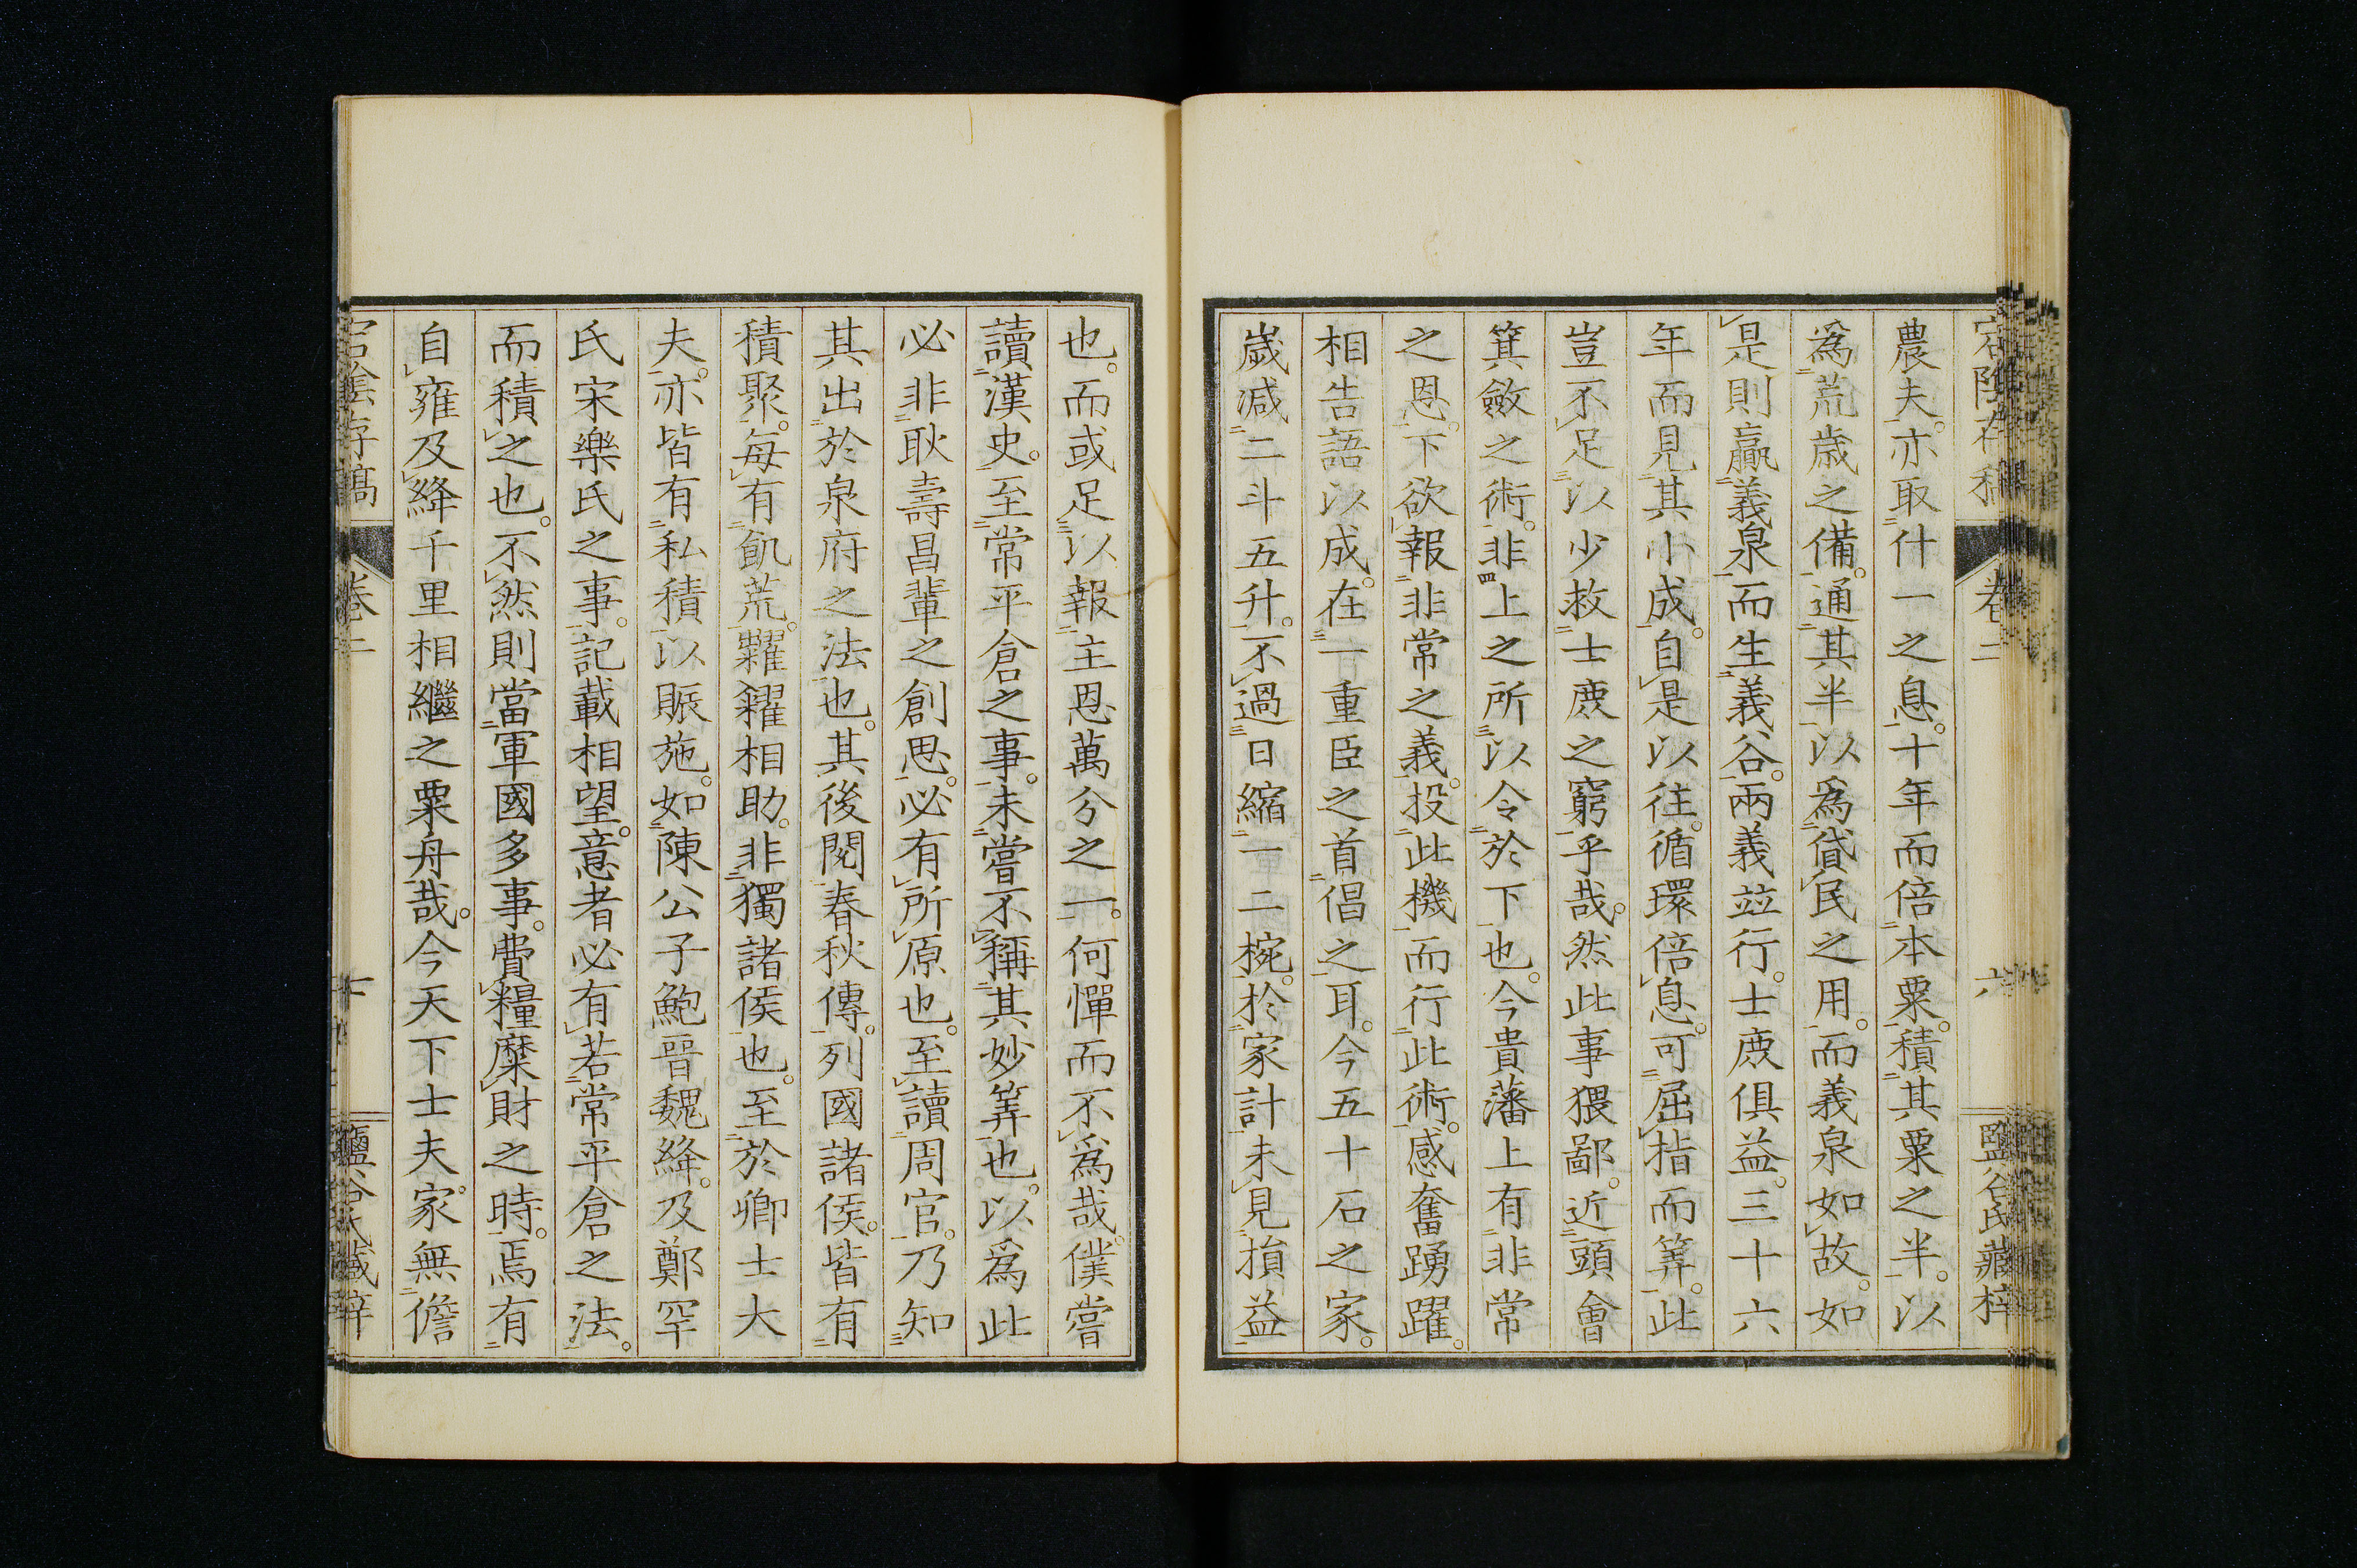 宕陰存稿 卷二 六 鹽谷氏藏梓
農夫。亦取什一之息。十年而倍本粟。積其粟之半。以
爲荒歲之備。通其半以爲貸民之用。而義泉如故。如
是則贏義泉而生義谷。兩義竝行。士庶俱益。三十六
年而見其小成。自是以往。循環倍息。可屈指而筭。此
豈不足以少救士庶之窮乎哉。然此事猥鄙。近頭會
箕斂之術。非上之所以令於下也。今貴藩上有非常
之恩。下欲報非常之義。投此機而行此術。感奮踴躍。
相告語以成。在一重臣之首倡之耳。今五十石之家。
歲減二斗五升。不過日縮一二椀。於家計未見損益
也。而或足以報主恩萬分之一。何憚而不爲哉。僕嘗
讀漢史。至常平倉之事。未嘗不稱其妙筭也。以爲此
必非耿壽昌輩之創思。必有所原也。至讀周官。乃知
其出於泉府之法也。其後閱春秋傳。列國諸侯。皆有
積聚。每有飢荒。糴糶相助。非獨諸侯也。至於卿士大
夫。亦皆有私積以賑施。如陳公子鮑晉魏絳。及鄭罕
氏宋樂氏之事。記載相望。意者必有若常平倉之法。
而積之也。不然則當軍國多事。費糧糜財之時。焉有
自雍及絳千里相繼之粟舟哉。今天下士夫家無儋
宕陰存稿 卷二 鹽谷氏藏梓